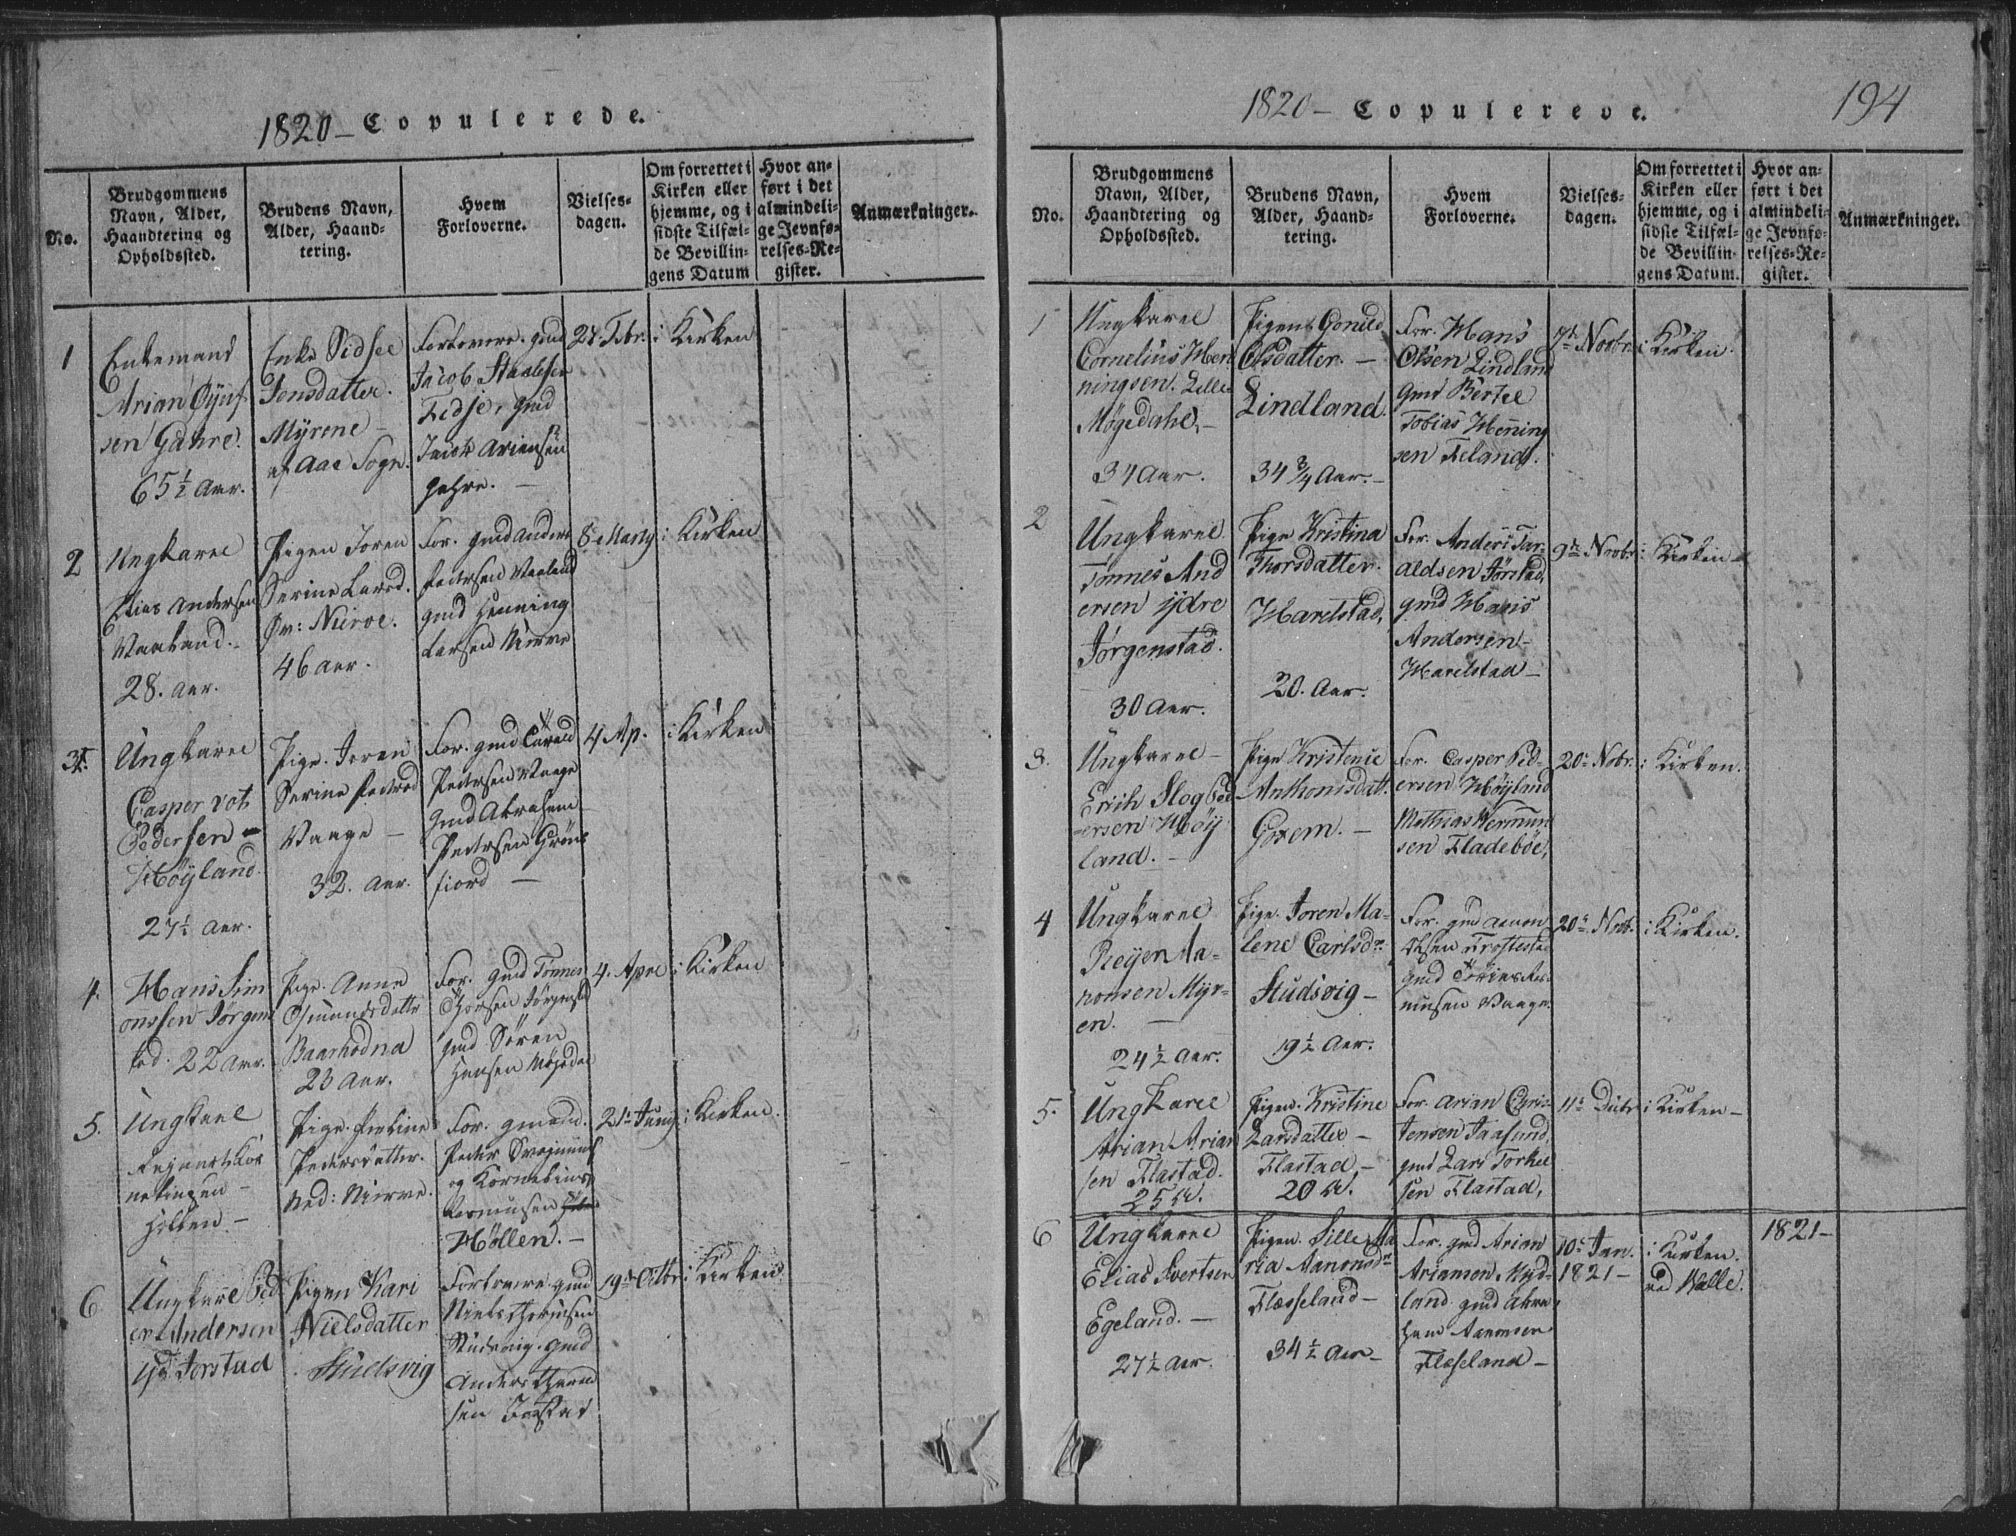 1820 – Copulerede.
No.
Brudgommens
Navn, Alder,
Haandtering og
Opholdssted.
Brudens Navn,
Alder, Haand-
tering.
Hvem
Forloverne.
Vielses-
dagen.
Om forrettet i
Kirken eller
hjemme, og i
sidste Tilfæl-
de Bevillin-
gens Datum
Hvor an-
ført i det
almindeli-
ge Jevnfø-
relses-Re-
gister.
Anmærkninger.
1
Enkemand
Arian
sen Gahre.
65½ Aar.
Enke Sidsee
Jensdatter.
Myrene –
af Aae Sogn.
Forlovere. gmd
Jacob Staalesen
Fedse, gmd
Jacob Ariensen
Gahre. –
Febr.
i Kirken
2
Ungkarel
Elias Andersen
Vaaland. –
28. Aar.
Pigen Joren
Serine Larsd.
Øv: Nirve.
46 Aar.
For. gmd Anders
Pedersen Vaaland
gmd Henning
Larsen Nirve
8de Marty
i Kirken
3.
Ungkarel
Casper
Pedersen –
Høyland.
27½ Aar.
Pige. Joren
Serine Pedersd
Vaage –
32. Aar.
For. gmd
Pedersen Vaage
gmd Abraham
Pedersen Grøns
fiord –
4 Ap.
i Kirken
4.
Hans Sim
onssen Jørgens
sted. 22 Aar.
Pige. Anne
Osmundsdatter
Baarhodna
23 Aar.
For. gmd Tønnes
Thorsen Jørgensted
gmd Søren
Hansen Møgedal
4. Apre
i Kirken
5.
Ungkarl
Holten –
Pige. Perline
Pedersdatter.
Ned: Nirve.
For. gmand.
Peder
og Kornelius
Rasmusen
Høllen. –
21de Juny
i Kirken.
6
Ungkare Ped
er Andersen
Yd. Jorstad
Pigen Kari
Nielsdatter
Studsvig
Forlovere gmd
Niels
Studsvig. gmd
Anders
sen Jorstad
19de Octbr
i Kirken
1820 – Copulerede.
194
No.
Brudgommens
Navn, Alder,
Haandtering og
Opholdssted.
Brudens Navn,
Alder, Haand-
tering.
Hvem
Forloverne.
Vielses-
dagen.
Om forrettet i
Kirken eller
hjemme, og i
sidste Tilfæl-
de Bevillin-
gens Datum.
Hvor an-
ført i det
almindeli-
ge Jevnfø-
relses-Re-
gister.
Anmærkninger.
1
Ungkarel
Cornelius Hen
ningsen. Lille
Møgedahl, –
34 Aar.
Pigen Gonild
Olsdatter. –
Lindland.
34 ¾ Aar. –
For. Hans
Olsen Lindland
gmd Bertel
Tobias Henning
sen Feland.
7de Novbr.
i Kirken
2
Ungkarel
Tønnes And
ersen ydre
Jørgenstad.
30 Aar.
Pige Kristina
Thorsdatter.
Harelstad,
20. Aar.
For. Anders Tar-
aldsen Jørstad,
gmd Hans
Andersen –
Harelstad –
9de Novbr
i Kirken –
3.
Ungkarel –
Erich Slog Ped
ersen Høy
land. –
Pige Kristenie
Anthonisdatt.
Gosem. –
For. Casper Ped-
ersen Høyland
Mathias Hermun
sen Fladebøe,
20de Nobr.
i Kirken.
4
Ungkarel
Reyer Aa-
ronsen Myr-
en. –
24 ½ Aar.
Pige. Joren Ma-
lene Carlsdr
Studsvig –
19 ½ Aar.
For. gmd Aanon
gmd
Vaage
20de Novb.
i Kirken.
5.
Ungkarel
Arian Arian
sen Flastad.
25 Aar.
Pigen. Kristine
Larsdatter –
Flastad –
20 Aar.
For. Arian Chris
tensen
gmd Lars Torkel
sen Flastad,
11te Decbr
i Kirken –
6
Ungkarel
Elias Svertsen
Egeland. –
27 ½ Aar.
Pigen. Sille Ma
ria Aanonsdr
Flæsseland –
34 ½ Aar –
For. gmd Arian
Ariansen Myd-
land gmd Abra
ham Aanonsen
Flæseland –
10de Jan.
1821 –
i Kirken.
ved Walle.
1821 –